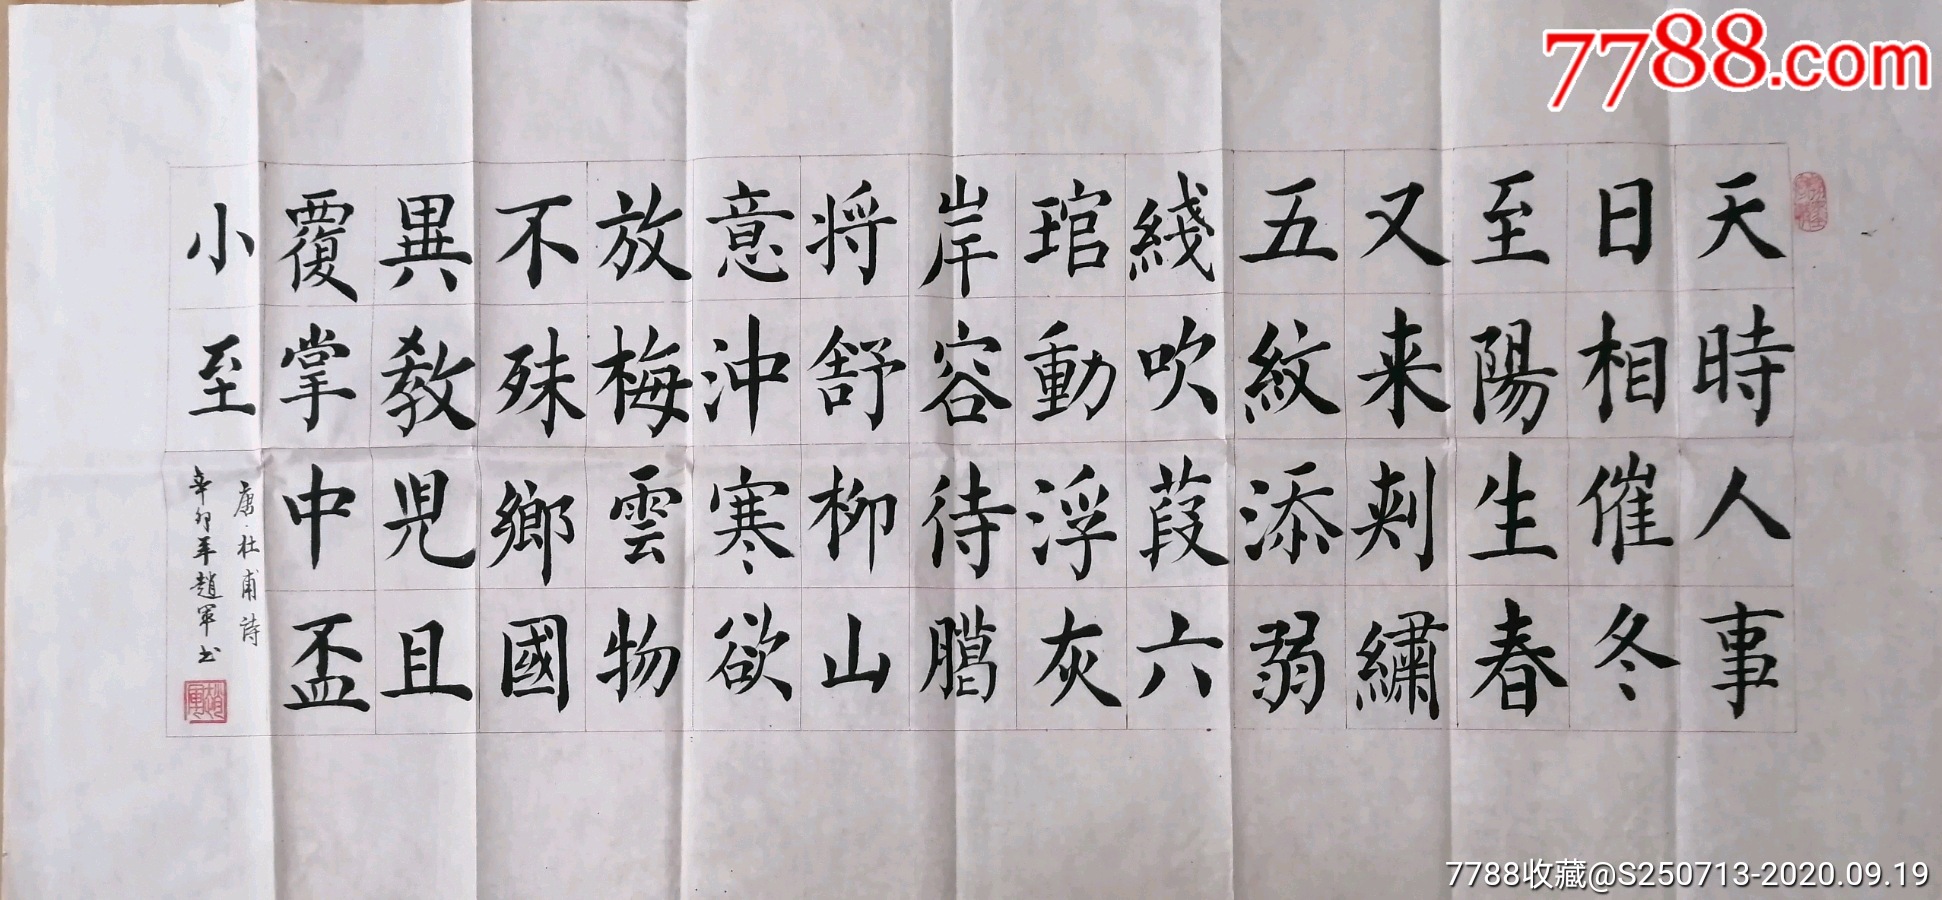 天時人事
日相催冬
至陽生春
又来刾繡
五紋添弱
綫吹葭六
琯動浮灰
岸容待臈
将舒柳山
意沖寒欲
放梅雲物
不殊鄉國
異教児且
覆掌中盃
小至
唐·杜甫詩
辛卯年趙軍书
7788.com
7788收藏@S250713-2020.09.19